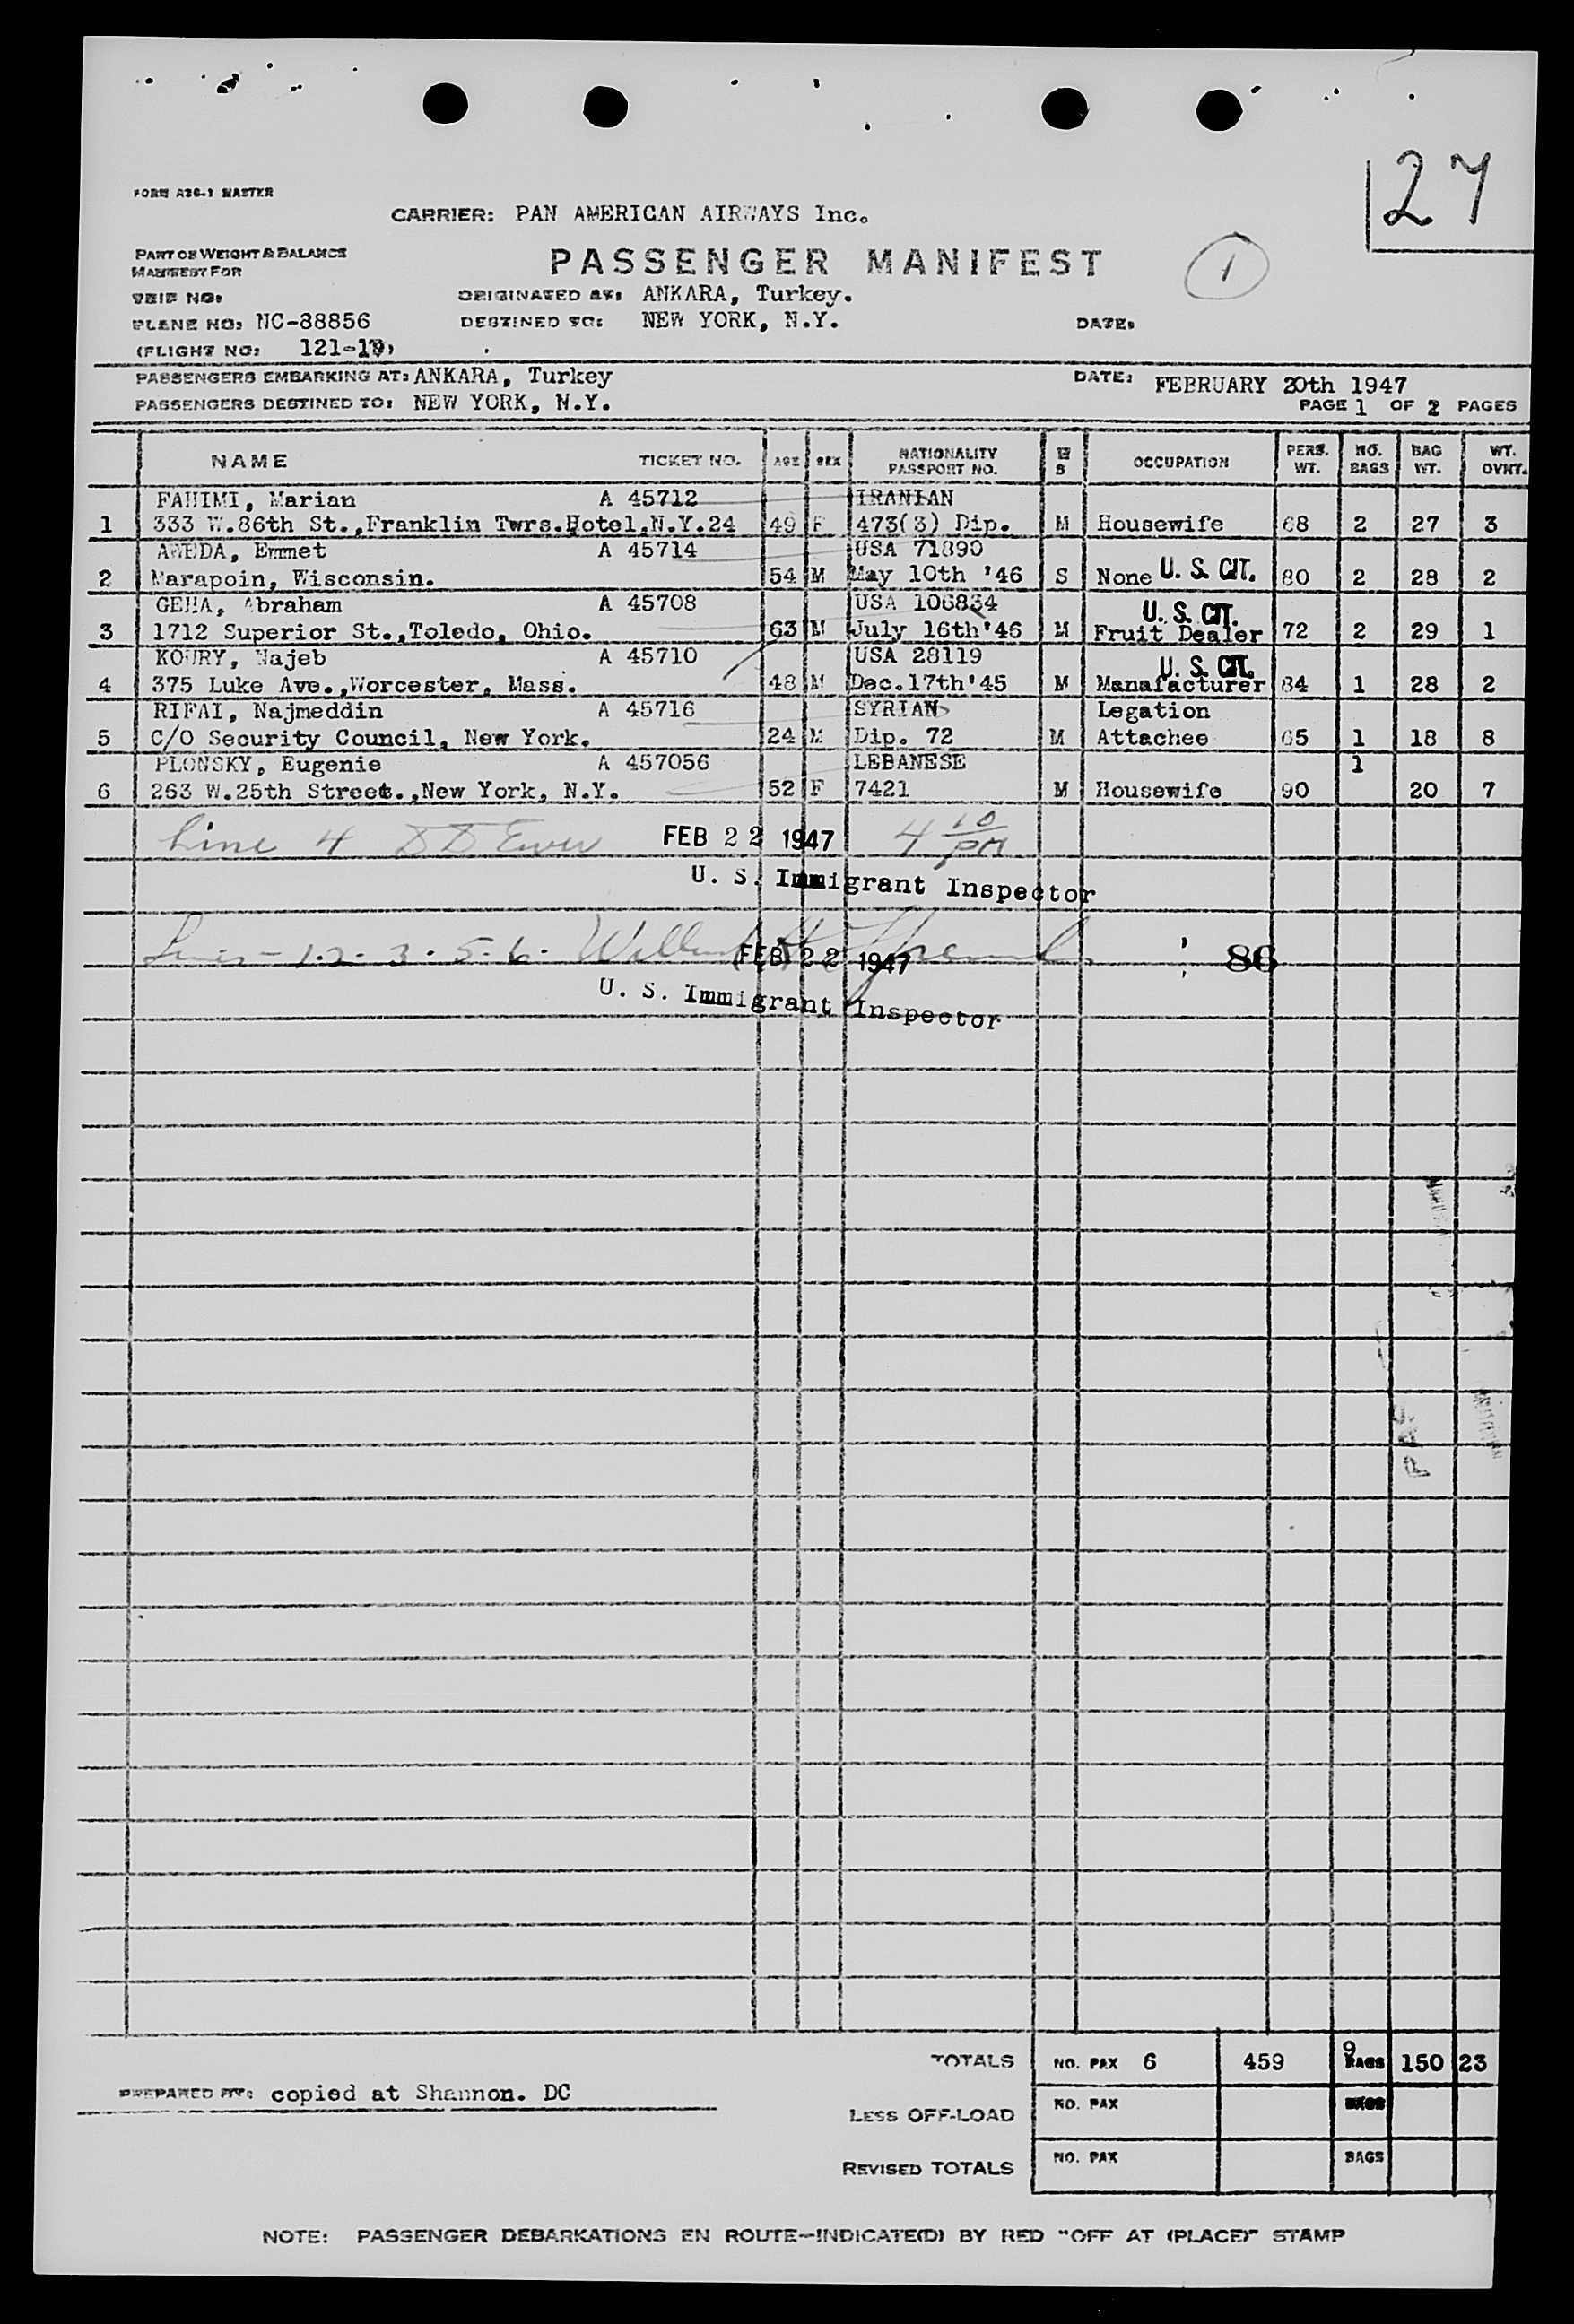 27
FORM A26-1 MASTER
CARRIER: PAN AMERICAN AIRWAYS Inc.
PART OF WEIGHT & BALANCE
MANIFEST FOR
PASSENGER MANIFEST
1
TRIP NO:
ORIGINATED AT: ANKARA, Turkey.
PLANE NO: NC-88856
DESTINED TO: NEW YORK, N.Y.
DATE:
(FLIGHT NO: 121-19)
PASSENGERS EMBARKING AT: ANKARA, Turkey
DATE: FEBRUARY 20th 1947
PASSENGERS DESTINED TO: NEW YORK, N.Y.
PAGE 1 OF 2 PAGES
NAME TICKET NO. AGE SEX NATIONALITY PASSPORT NO. M S OCCUPATION PERS. WT. NO. BAGS BAG WT. WT. OVHT.
FAHIMI, Marian A 45712 IRANIAN
1 333 W.86th St.,Franklin Twrs.Hotel,N.Y.24 49 F 473(3) Dip. M Housewife 68 2 27 3
AWEDA, Emmet A 45714 USA 71890
2 Marapoin, Wisconsin. 54 M May 10th '46 S None U. S. CIT. 80 2 28 2
GEHA, Abraham A 45708 USA 106834 U. S. CIT.
3 1712 Superior St.,Toledo, Ohio. 63 M July 16th'46 M Fruit Dealer 72 2 29 1
KOURY, Najeb A 45710 USA 28119 U. S. CIT.
4 375 Luke Ave.,Worcester, Mass. 48 M Dec.17th'45 M Manafacturer 84 1 28 2
RIFAI, Najmeddin A 45716 SYRIAN Legation
5 C/O Security Council, New York. 24 M Dip. 72 M Attachee 65 1 18 8
PLONSKY, Eugenie A 457056 LEBANESE 1
6 263 W.25th Street.,New York, N.Y. 52 F 7421 M Housewife 90 20 7
Line 4 FEB 22 1947 4 10 PM
U. S. Immigrant Inspector
Lines - 1. 2. 3. 5. 6. FEB 22 1947 86
U. S. Immigrant Inspector
TOTALS NO. PAX 6 459 9 BAGS 150 23
PREPARED BY: copied at Shannon. DC
LESS OFF-LOAD NO. PAX BAGS
REVISED TOTALS NO. PAX BAGS
NOTE: PASSENGER DEBARKATIONS EN ROUTE-INDICATE(D) BY RED "OFF AT (PLACE)" STAMP